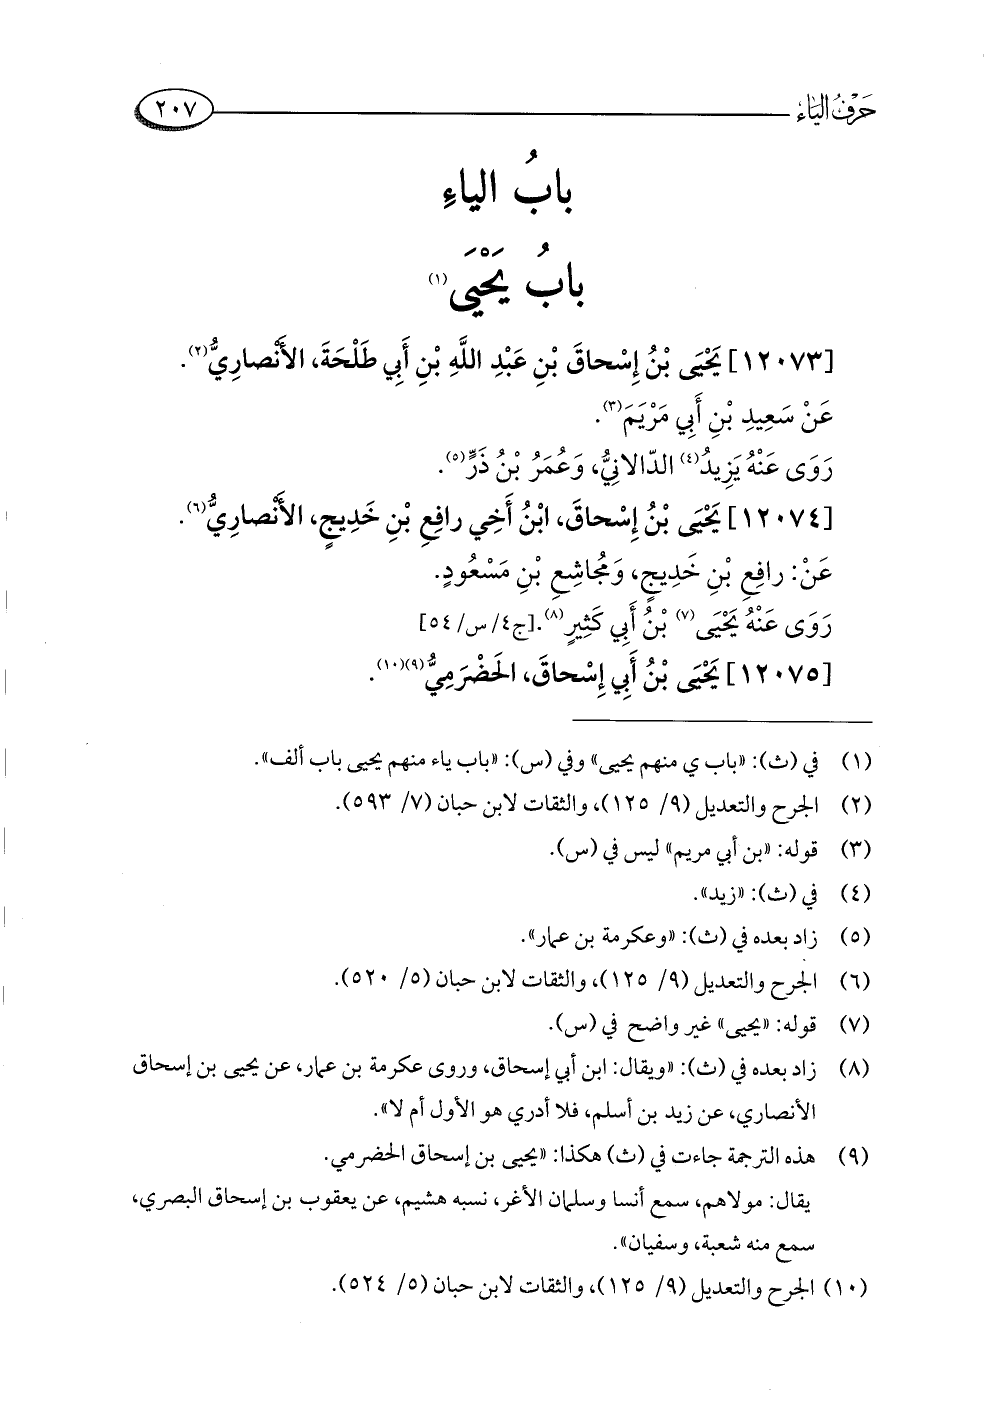 حَرْفُ اليَاءِ
٢٠٧
بابُ الياءِ
بابُ يَحْيَى(١)
[١٢٠٧٣] يَحْيَى بْنُ إِسْحاقَ بْنِ عَبْدِ اللَّهِ بْنِ أَبِي طَلْحَةَ، الأَنْصارِيُّ(٢).
عَنْ سَعِيدِ بْنِ أَبِي مَرْيَمَ(٣).
رَوَى عَنْهُ يَزِيدُ(٤) الدّالانِيُّ، وَعُمَرُ بْنُ ذَرٍّ(٥).
[١٢٠٧٤] يَحْيَى بْنُ إِسْحاقَ، ابْنُ أَخِي رافِعِ بْنِ خَدِيجٍ، الأَنْصارِيُّ(٦).
عَنْ: رافِعِ بْنِ خَدِيجٍ، وَمُجاشِعِ بْنِ مَسْعُودٍ.
رَوَى عَنْهُ يَحْيَى(٧) بْنُ أَبِي كَثِيرٍ(٨).[ج٤/ س/ ٥٤]
[١٢٠٧٥] يَحْيَى بْنُ أَبِي إِسْحاقَ، الحَضْرَمِيُّ(٩)(١٠).
(١) في (ث): «باب ي منهم يحيى» وفي (س): «باب ياء منهم يحيى باب ألف».
(٢) الجرح والتعديل (٩/ ١٢٥)، والثقات لابن حبان (٧/ ٥٩٣).
(٣) قوله: «بن أبي مريم» ليس في (س).
(٤) في (ث): «زيد».
(٥) زاد بعده في (ث): «وعكرمة بن عمار».
(٦) الجرح والتعديل (٩/ ١٢٥)، والثقات لابن حبان (٥/ ٥٢٠).
(٧) قوله: «يحيى» غير واضح في (س).
(٨) زاد بعده في (ث): «ويقال: ابن أبي إسحاق، وروى عكرمة بن عمار، عن يحيى بن إسحاق
الأنصاري، عن زيد بن أسلم، فلا أدري هو الأول أم لا».
(٩) هذه الترجمة جاءت في (ث) هكذا: «يحيى بن إسحاق الحضرمي.
يقال: مولاهم، سمع أنسا وسلمان الأغر، نسبه هشيم، عن يعقوب بن إسحاق البصري،
سمع منه شعبة، وسفيان».
(١٠) الجرح والتعديل (٩/ ١٢٥)، والثقات لابن حبان (٥/ ٥٢٤).